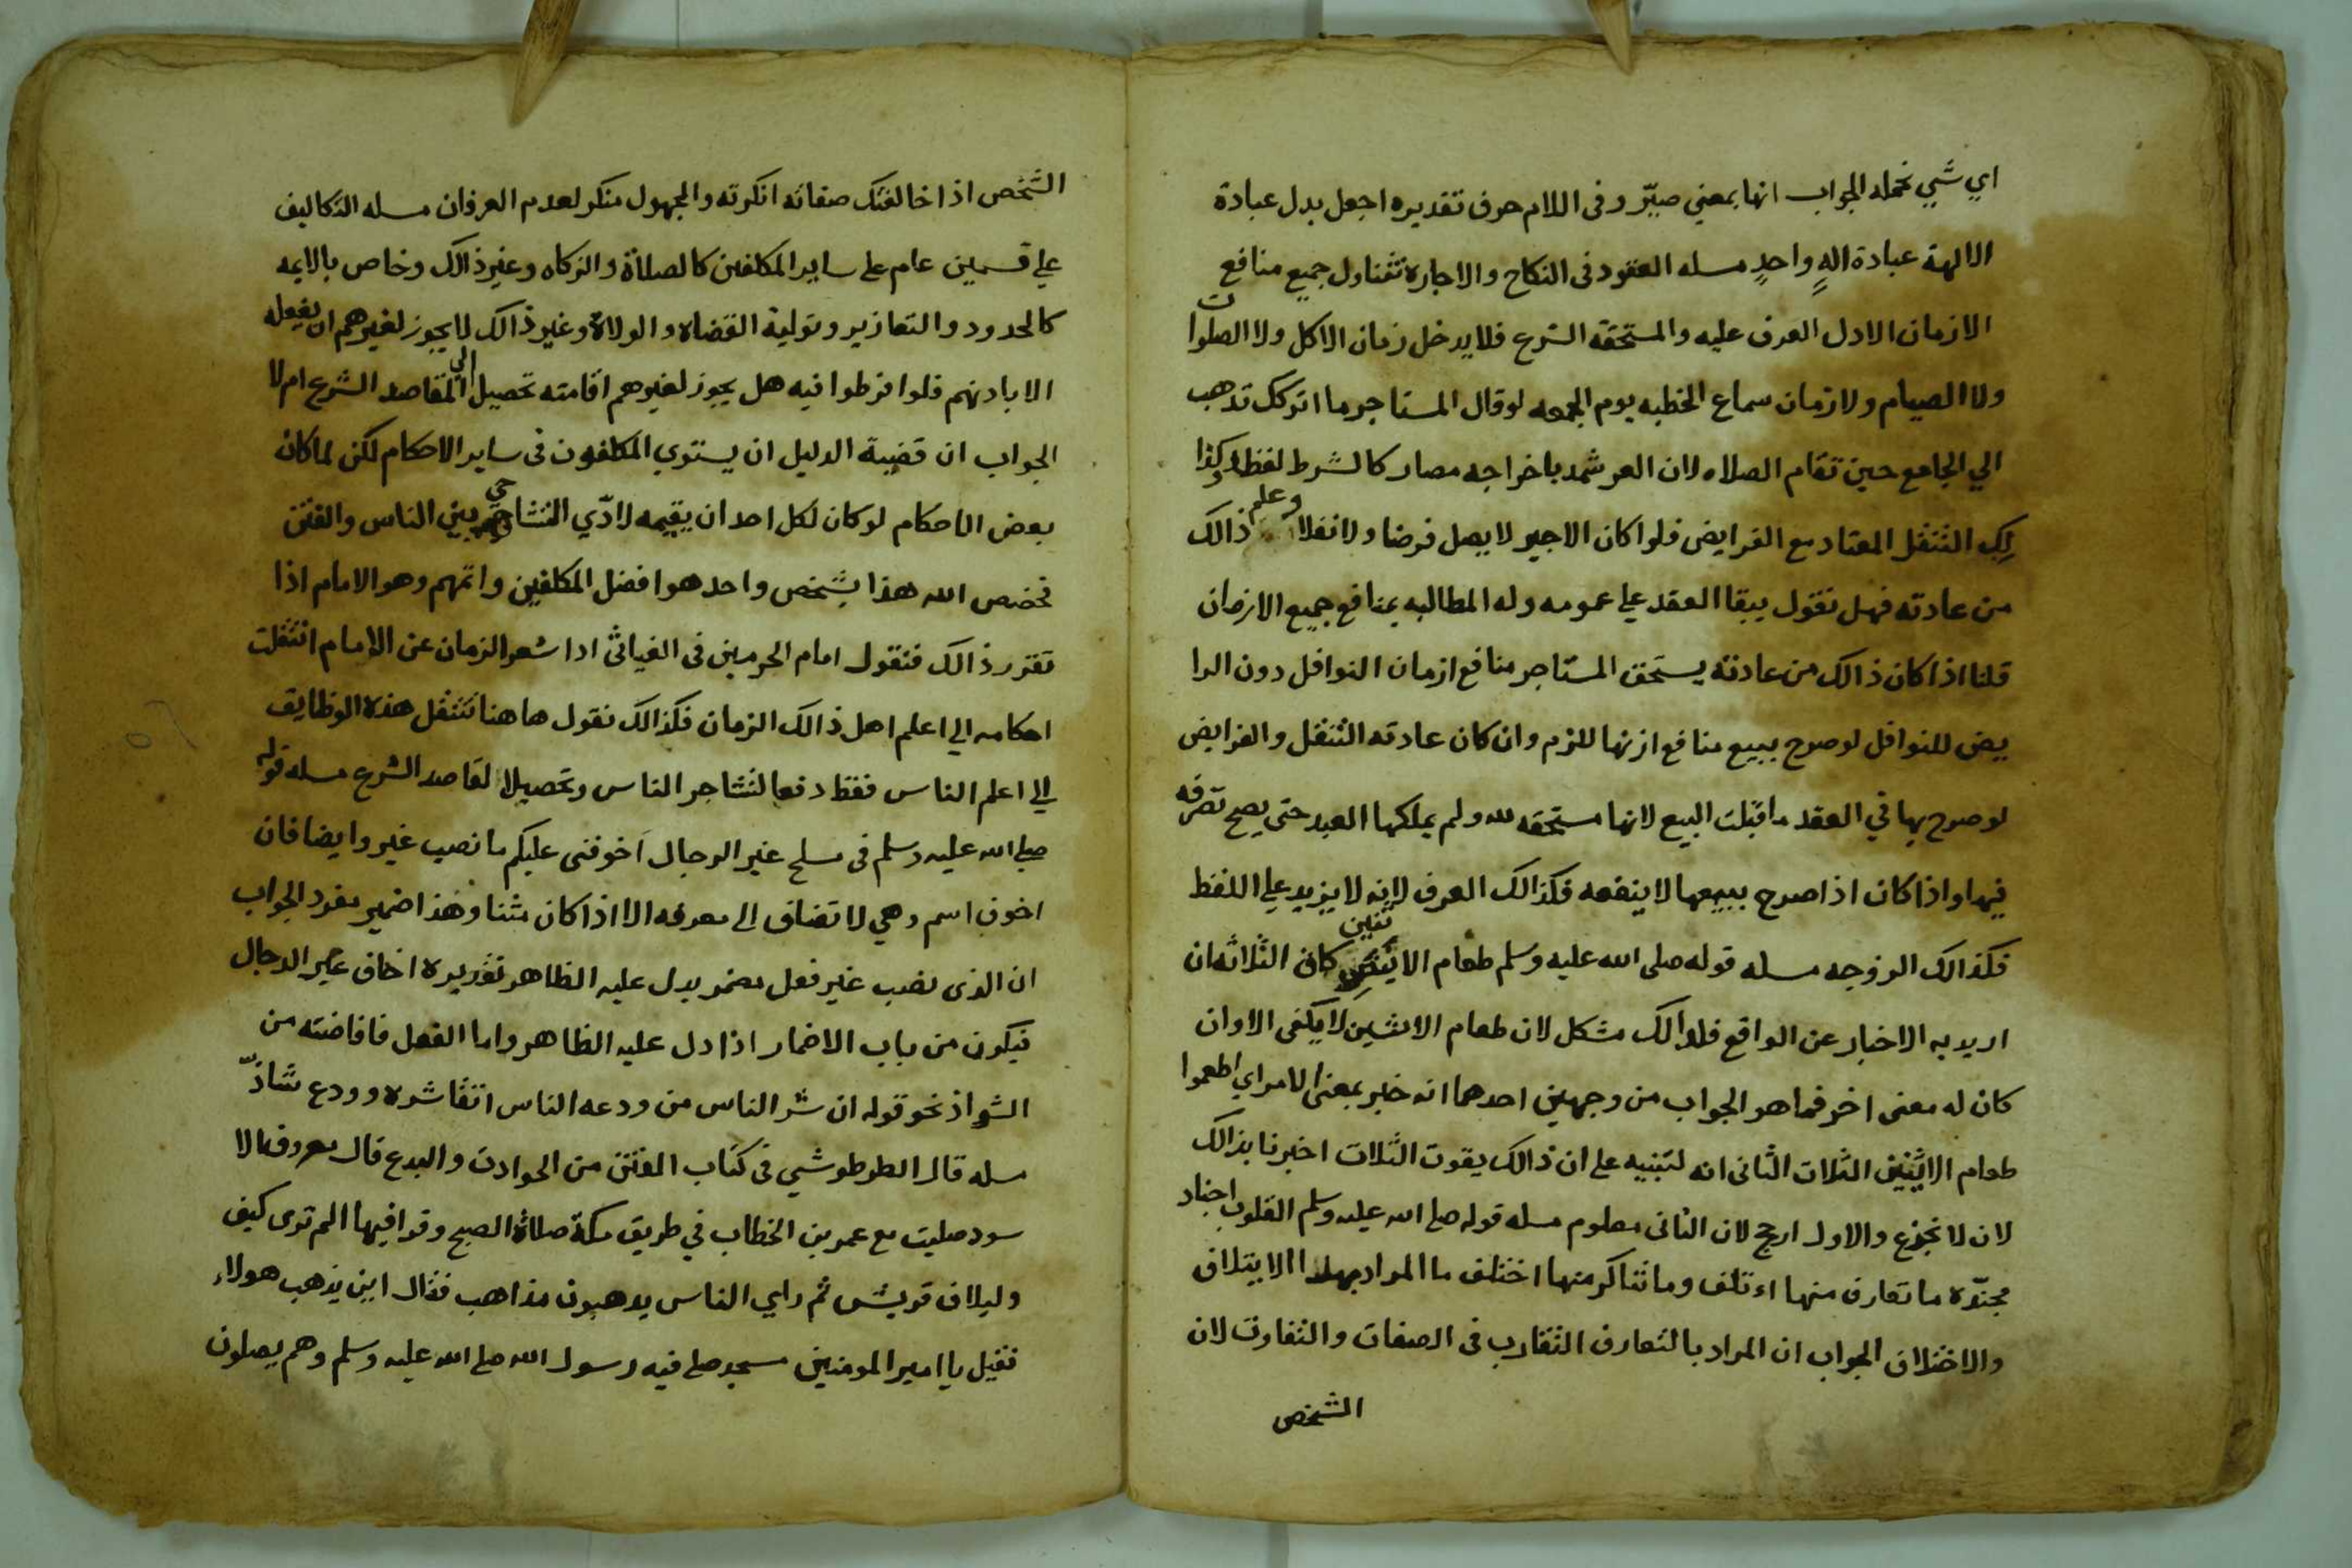 اي شي نحمله الجواب انها بمعني صيّر وفى اللام حرف تقديره اجعل بدل عبادة
الالهة عبادة الهٍ واحدٍ مسله العقود فى النكاح والاجاره تتناول جميع منافع
الازمان الادل العرف عليه والمستحقه الشرع فلا يدخل زمان الاكل ولا الصلوات
ولا الصيام ولا زمان سماع الخطبه يوم الجمعه لو قال المستاجر ما اتركك تدهب
الي الجامع حين تقام الصلاه لان العر شهد باخراجه مصار كالشرط لفظا وكذا
لك التنفل المعتاد مع الفرايض فلوا كان الاجير لا يصل فرضا ولا نفلا وعلم ذالك
من عادته فهل نقول يبقا العقد علي عمومه وله المطالبه بمنافع جميع الازمان
قلنا اذا كان ذالك من عادته يستحق المستاجر منافع ازمان النوافل دون الرا
يض للنوافل لو صرح ببيع منافع ازنها للزم وان كان عادته التنفل والفرايض
لو صرح بها في العقد ما قبلت البيع لانها مستحقه لله ولم يملكها العبد حتى يصح تصرفه
فيها واذا كان اذا صرح ببيعها لا ينفعه فكذالك العرف لانه لا يزيد علي اللفظ
فكذالك الزوجه مسله قوله صلى الله عليه وسلم طعام الاثنين كان الثلاثه ان
اريد به الاخبار عن الواقع فلوالك مشكل لان طعام الاثنين لا يكفى الا وان
كان له معنى اخر فما هو الجواب من وجهين احدهما انه خبر بمعنى الامر اي اطعموا
طعام الاثنين الثلاث الثانى انه لتنبيه على ان ذالك يقوت الثلاث اخبرنا بذالك
لان لا نجزع والاول ارجح لان الثانى معلوم مسله قوله صلى الله عليه وسلم القلوب اجناد
مجنّده ما تعارف منها اءتلف وما تناكر منها اختلف ما المراد بهذا الايتلاف
والاختلاف الجواب ان المراد بالتعارف التقارب فى الصفات والتفاوت لان
الشخص
الشخص اذا خالفتك صفاته انكرته والمجهول منكر لعدم العرفان مسله التكاليف
علي قسمين عام على ساير المكلفين كالصلاة والزكاه وغير ذالك وخاص بالايمه
كالحدود والتعازير وتولية القضاه والولاة وغير ذالك لا يجوز لغيرهم ان يفعله
الا باذنهم فلوا فرطوا فيه هل يجوز لغيرهم اقامته تحصيل الي المقاصد الشرع ام لا
الجواب ان قضية الدليل ان يستوي المكلفون فى ساير الاحكام لكن لما كان
بعض الاحكام لو كان لكل احد ان يقيمه لادّي التشاجر بين الناس والفتن
فخصص الله هذا بشخص واحد هو افضل المكلفين واتمهم وهو الامام اذا
تقرر ذالك فنقول امام الحرمين فى الغياثى اذا شعر الزمان عن الامام انتقلت
احكامه الي اعلم اهل ذالك الزمان فكذالك نقول هاهنا تنتقل هذه الوظايف
الي اعلم الناس فقط دفعا لتشاجر الناس وتحصيلا لمقاصد الشرع مسله قوله
صلى الله عليه وسلم فى مسلح غير الدجال اخوفنى عليكم ما نصب غير وايضا فان
اخوف اسم وهي لا تضاف الى معرفه الا اذا كان مثنا وهذا ضمير مفرد الجواب
ان الذى نصب غير فعل مضمر يدل عليه الظاهر تقديره اخاف غير الدجال
فيكون من باب الاضمار اذا دل عليه الظاهر واما الفعل فافاضته من
الشواذ نحو قوله ان شر الناس من ودعه الناس اتقا شره وودع شاذّ
مسله قال الطرطوشي فى كتاب الفتن من الحوادث والبدع قال معروف الا
سود صليت مع عمر بن الخطاب في طريق مكة صلاة الصبح وقرا فيها الم ترى كيف
وليلاف قريش ثم راي الناس يدهبون مذاهب فقال اين يذهب هولاء
فقيل يا امير المومنين مسجد صلى فيه رسول الله صلى الله عليه وسلم وهم يصلون